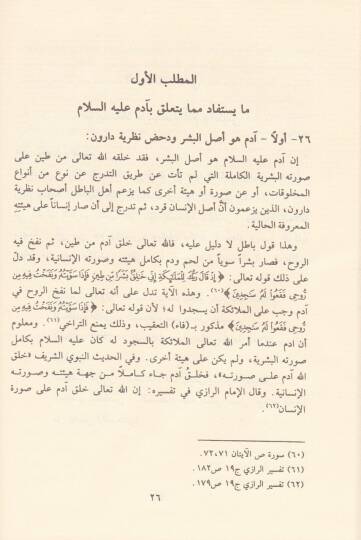 المطلب الأول
ما يستفاد مما يتعلق بآدم عليه السلام
٢٦- أولاً - آدم هو أصل البشر ودحض نظرية دارون:
إن آدم عليه السلام هو أصل البشر، فقد خلقه الله تعالى من طين على
صورته البشرية الكاملة التي لم تأت عن طريق التدرج عن نوع من أنواع
المخلوقات، أو عن صورة أو هيئة أخرى كما يزعم أهل الباطل أصحاب نظرية
دارون، الذين يزعمون أنّ أصل الإنسان قرد، ثم تدرج إلى أن صار إنساناً على هيئته
المعروفة الحالية.
وهذا قول باطل لا دليل عليه، فالله تعالى خلق آدم من طين، ثم نفخ فيه
الروح، فصار بشراً سوياً من لحم ودم بكامل هيئته وصورته الإنسانية، وقد دلّ
على ذلك قوله تعالى: ﴿إِذْ قَالَ رَبُّكَ لِلْمَلَٰٓئِكَةِ إِنِّي خَٰلِقٌۢ بَشَرًا مِّن طِينٍ فَإِذَا سَوَّيْتُهُۥ وَنَفَخْتُ فِيهِ مِن
رُّوحِى فَقَعُوا۟ لَهُۥ سَٰجِدِينَ﴾(٦٠). وهذه الآية تدل على أنه تعالى لما نفخ الروح في
آدم وجب على الملائكة أن يسجدوا له؛ لأن قوله تعالى: ﴿فَإِذَا سَوَّيْتُهُۥ وَنَفَخْتُ فِيهِ مِن
رُّوحِى فَقَعُوا۟ لَهُۥ سَٰجِدِينَ﴾ مذكور بـ(فاء) التعقيب، وذلك يمنع التراخي(٦١). ومعلوم
أن آدم عندما أمر الله تعالى الملائكة بالسجود له كان عليه السلام بكامل
صورته البشرية، ولم يكن على هيئة أخرى. وفي الحديث النبوي الشريف «خلق
الله آدم على صورته»، فخلقُ آدم جاء كاملاً من جهة هيئته وصورته
الإنسانية. وقال الإمام الرازي في تفسيره: إن الله تعالى خلق آدم على صورة
الإنسان(٦٢).
(٦٠) سورة ص الآيتان ٧١، ٧٢.
(٦١) تفسير الرازي ج١٩ ص١٨٢.
(٦٢) تفسير الرازي ج١٩ ص١٧٩.
٢٦